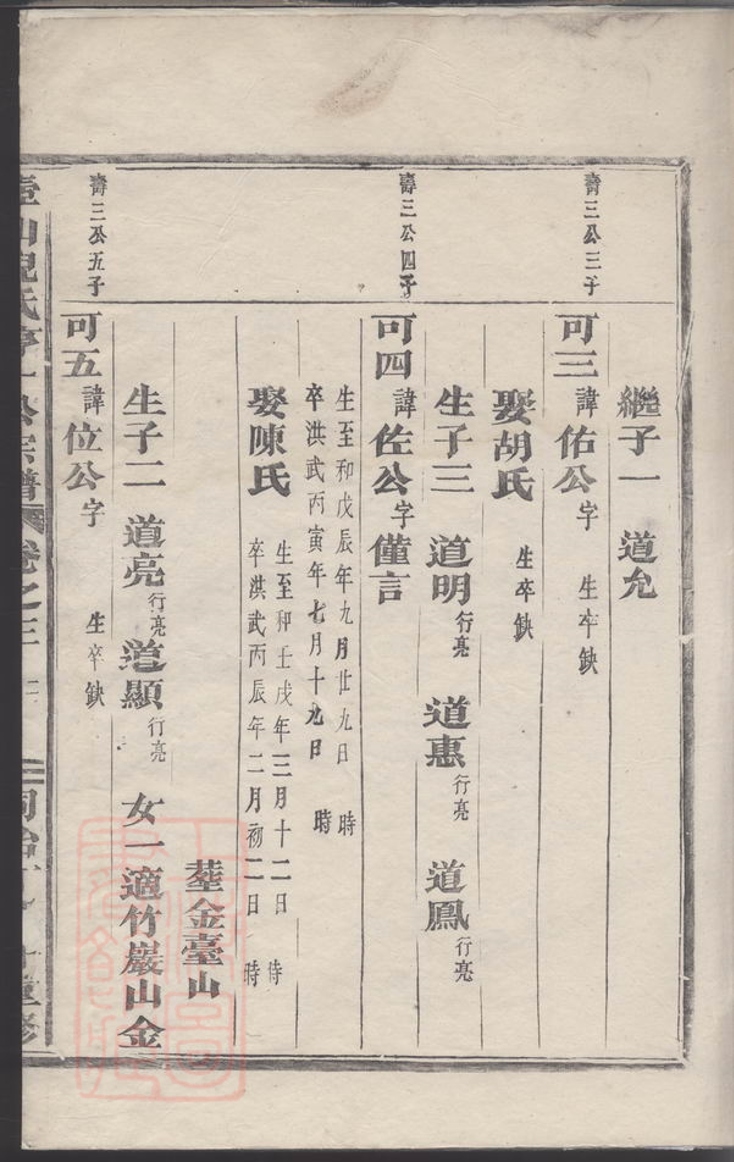 繼子一　道允
壽三公三子
可三諱佑公字　生卒缺
娶胡氏　生卒缺
生子三　道明行亮　道惠行亮　道鳳行亮
壽三公四子
可四諱佐公字僅言
生至和戊辰年九月廿九日　時
卒洪武丙寅年七月十九日　時
娶陳氏
生至和壬戌年三月十二日　侍
卒洪武丙辰年二月初二日　時
塟金臺山
生子二　道亮行亮　道顯行亮　女一適竹巖山金
壽三公五子
可五諱位公字　生卒缺